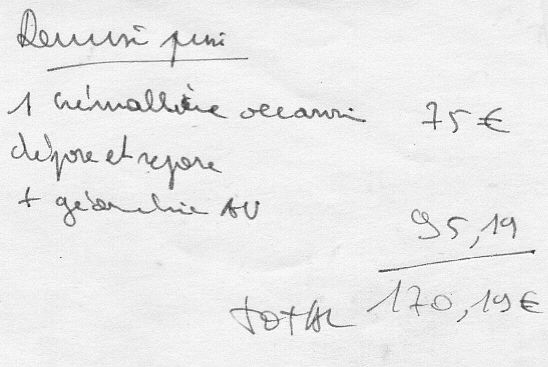 Remise prix
1 crémaillère occasion 75 €
dépose et repose
+ géométrie AV
95,19
TOTAL 170,19 €